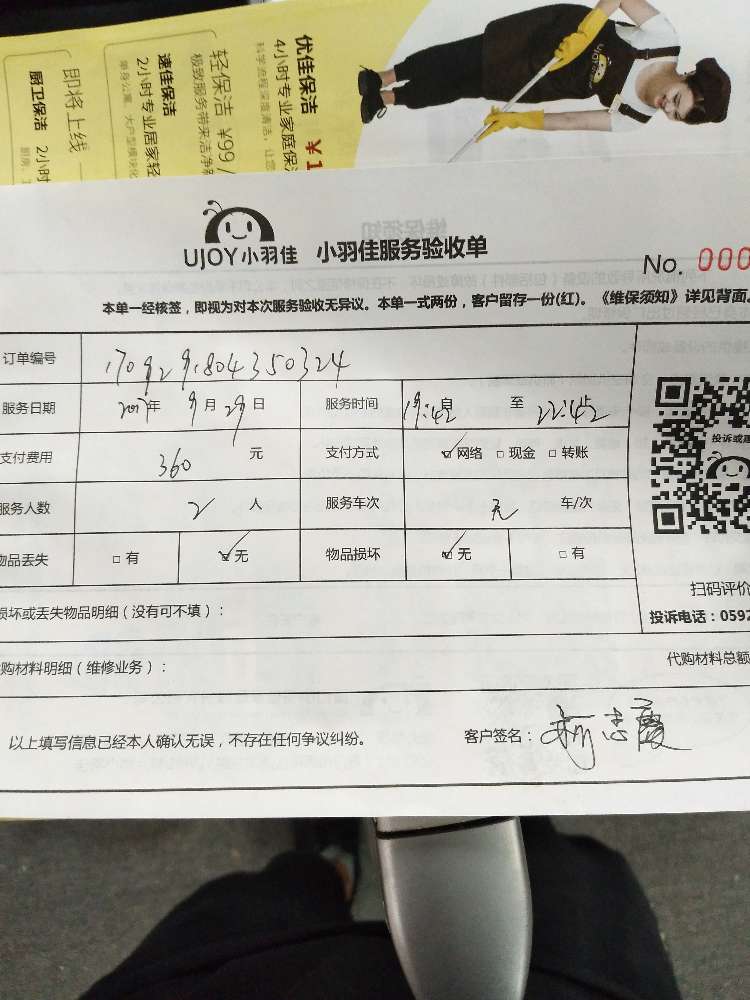 优佳保洁 ¥1
4小时专业家庭保洁
科学流程深度清洁，让您
轻保洁 ¥99 /
极致服务带来洁净
速佳保洁
2小时专业居家轻
单身公寓、大户型模块化
即将上线
厨卫保洁 2小时
UJOY
UJOY小羽佳 小羽佳服务验收单
No. 000
本单一经核签，即视为对本次服务验收无异议。本单一式两份，客户留存一份(红)。《维保须知》详见背面。
订单编号 1709291804350324
服务日期 2017年 9月 29日 服务时间 19:42 自 至 22:42 止
支付费用 360 元 支付方式 网络 现金 转账
服务人数 2 人 服务车次 无 车/次
投诉或建
物品丢失 有 无 物品损坏 无 有
扫码评价
损坏或丢失物品明细（没有可不填）：
投诉电话：0592
代购材料明细（维修业务）： 代购材料总额
以上填写信息已经本人确认无误，不存在任何争议纠纷。 客户签名：